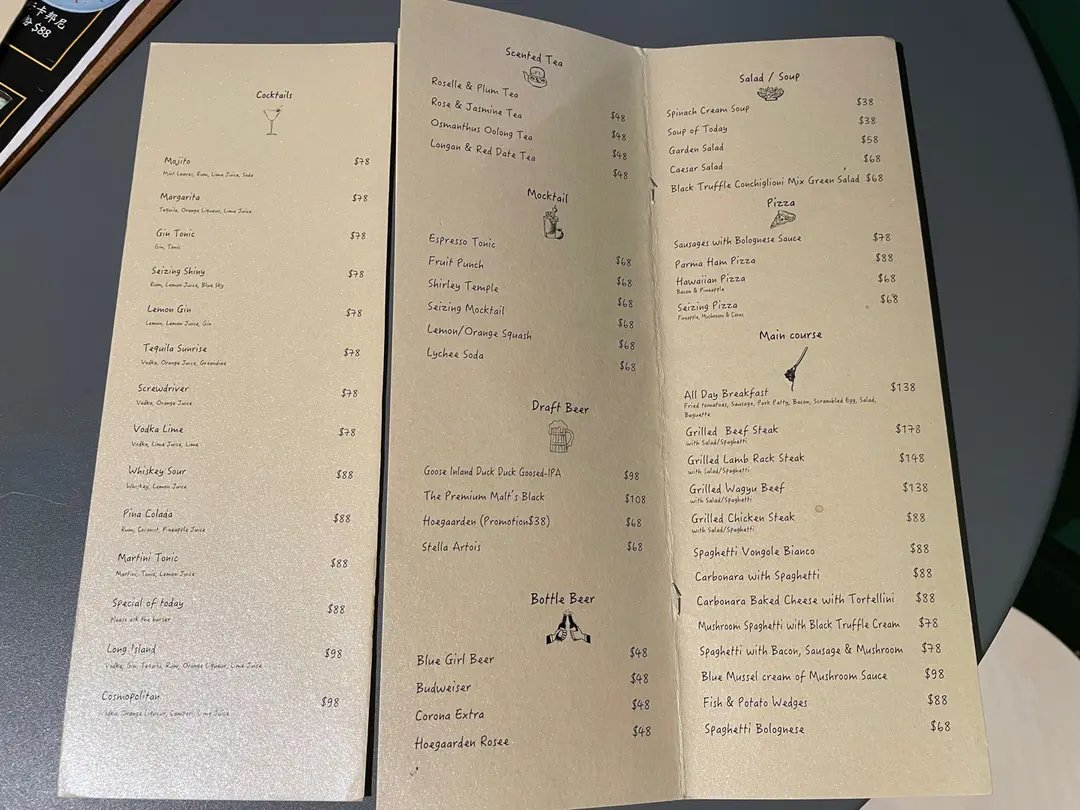 卡邦尼
份 $88
Cocktails
Mojito $78
Mint Leaves, Rum, Lime Juice, Soda
Margarita $78
Tequila, Orange Liqueur, Lime Juice
Gin Tonic $78
Gin, Tonic
Seizing Shiny $78
Rum, Lemon Juice, Blue Sky
Lemon Gin $78
Lemon, Lemon Juice, Gin
Tequila Sunrise $78
Vodka, Orange Juice, Greandine
Screwdriver $78
Vodka, Orange Juice
Vodka Lime $78
Vodka, Lime Juice, Lime
Whiskey Sour $88
Whiskey, Lemon Juice
Pina Colada $88
Rum, Coconut, Pineapple Juice
Martini Tonic $88
Martini, Tonic, Lemon Juice
Special of today $88
Please ask the
Long Island $98
Vodka, Gin, Tequila, Rum, Orange Liqueur, Lime Juice
Cosmopolitan $98
Orange Liqueur, Campari, Lime Juice
Scented Tea
Roselle & Plum Tea $48
Rose & Jasmine Tea $48
Osmanthus Oolong Tea $48
Longan & Red Date Tea $48
Mocktail
Espresso Tonic $68
Fruit Punch $68
Shirley Temple $68
Seizing Mocktail $68
Lemon/Orange Squash $68
Lychee Soda $68
Draft Beer
Goose Inland Duck Duck Goosed-IPA $98
The Premium Malt's Black $108
Hoegaarden (Promotion$38) $68
Stella Artois $68
Bottle Beer
Blue Girl Beer $48
Budweiser $48
Corona Extra $48
Hoegaarden Rosee $48
Salad / Soup
Spinach Cream Soup $38
Soup of Today $38
Garden Salad $58
Caesar Salad $68
Black Truffle Conchiglioni Mix Green Salad $68
Pizza
Sausages with Bolognese Sauce $78
Parma Ham Pizza $88
Hawaiian Pizza $68
Bacon & Pineapple
Seizing Pizza $68
Pineapple, Mushroom & Corns
Main course
All Day Breakfast $138
Fried tomatoes, Sausage, Pork Patty, Bacon, Scrambled Egg, Salad,
Baguette
Grilled Beef Steak $178
with Salad/Spaghetti
Grilled Lamb Rack Steak $148
with Salad/Spaghetti
Grilled Wagyu Beef $138
with Salad/Spaghetti
Grilled Chicken Steak $88
with Salad/Spaghetti
Spaghetti Vongole Bianco $88
Carbonara with Spaghetti $88
Carbonara Baked Cheese with Tortellini $88
Mushroom Spaghetti with Black Truffle Cream $78
Spaghetti with Bacon, Sausage & Mushroom $78
Blue Mussel cream of Mushroom Sauce $98
Fish & Potato Wedges $88
Spaghetti Bolognese $68